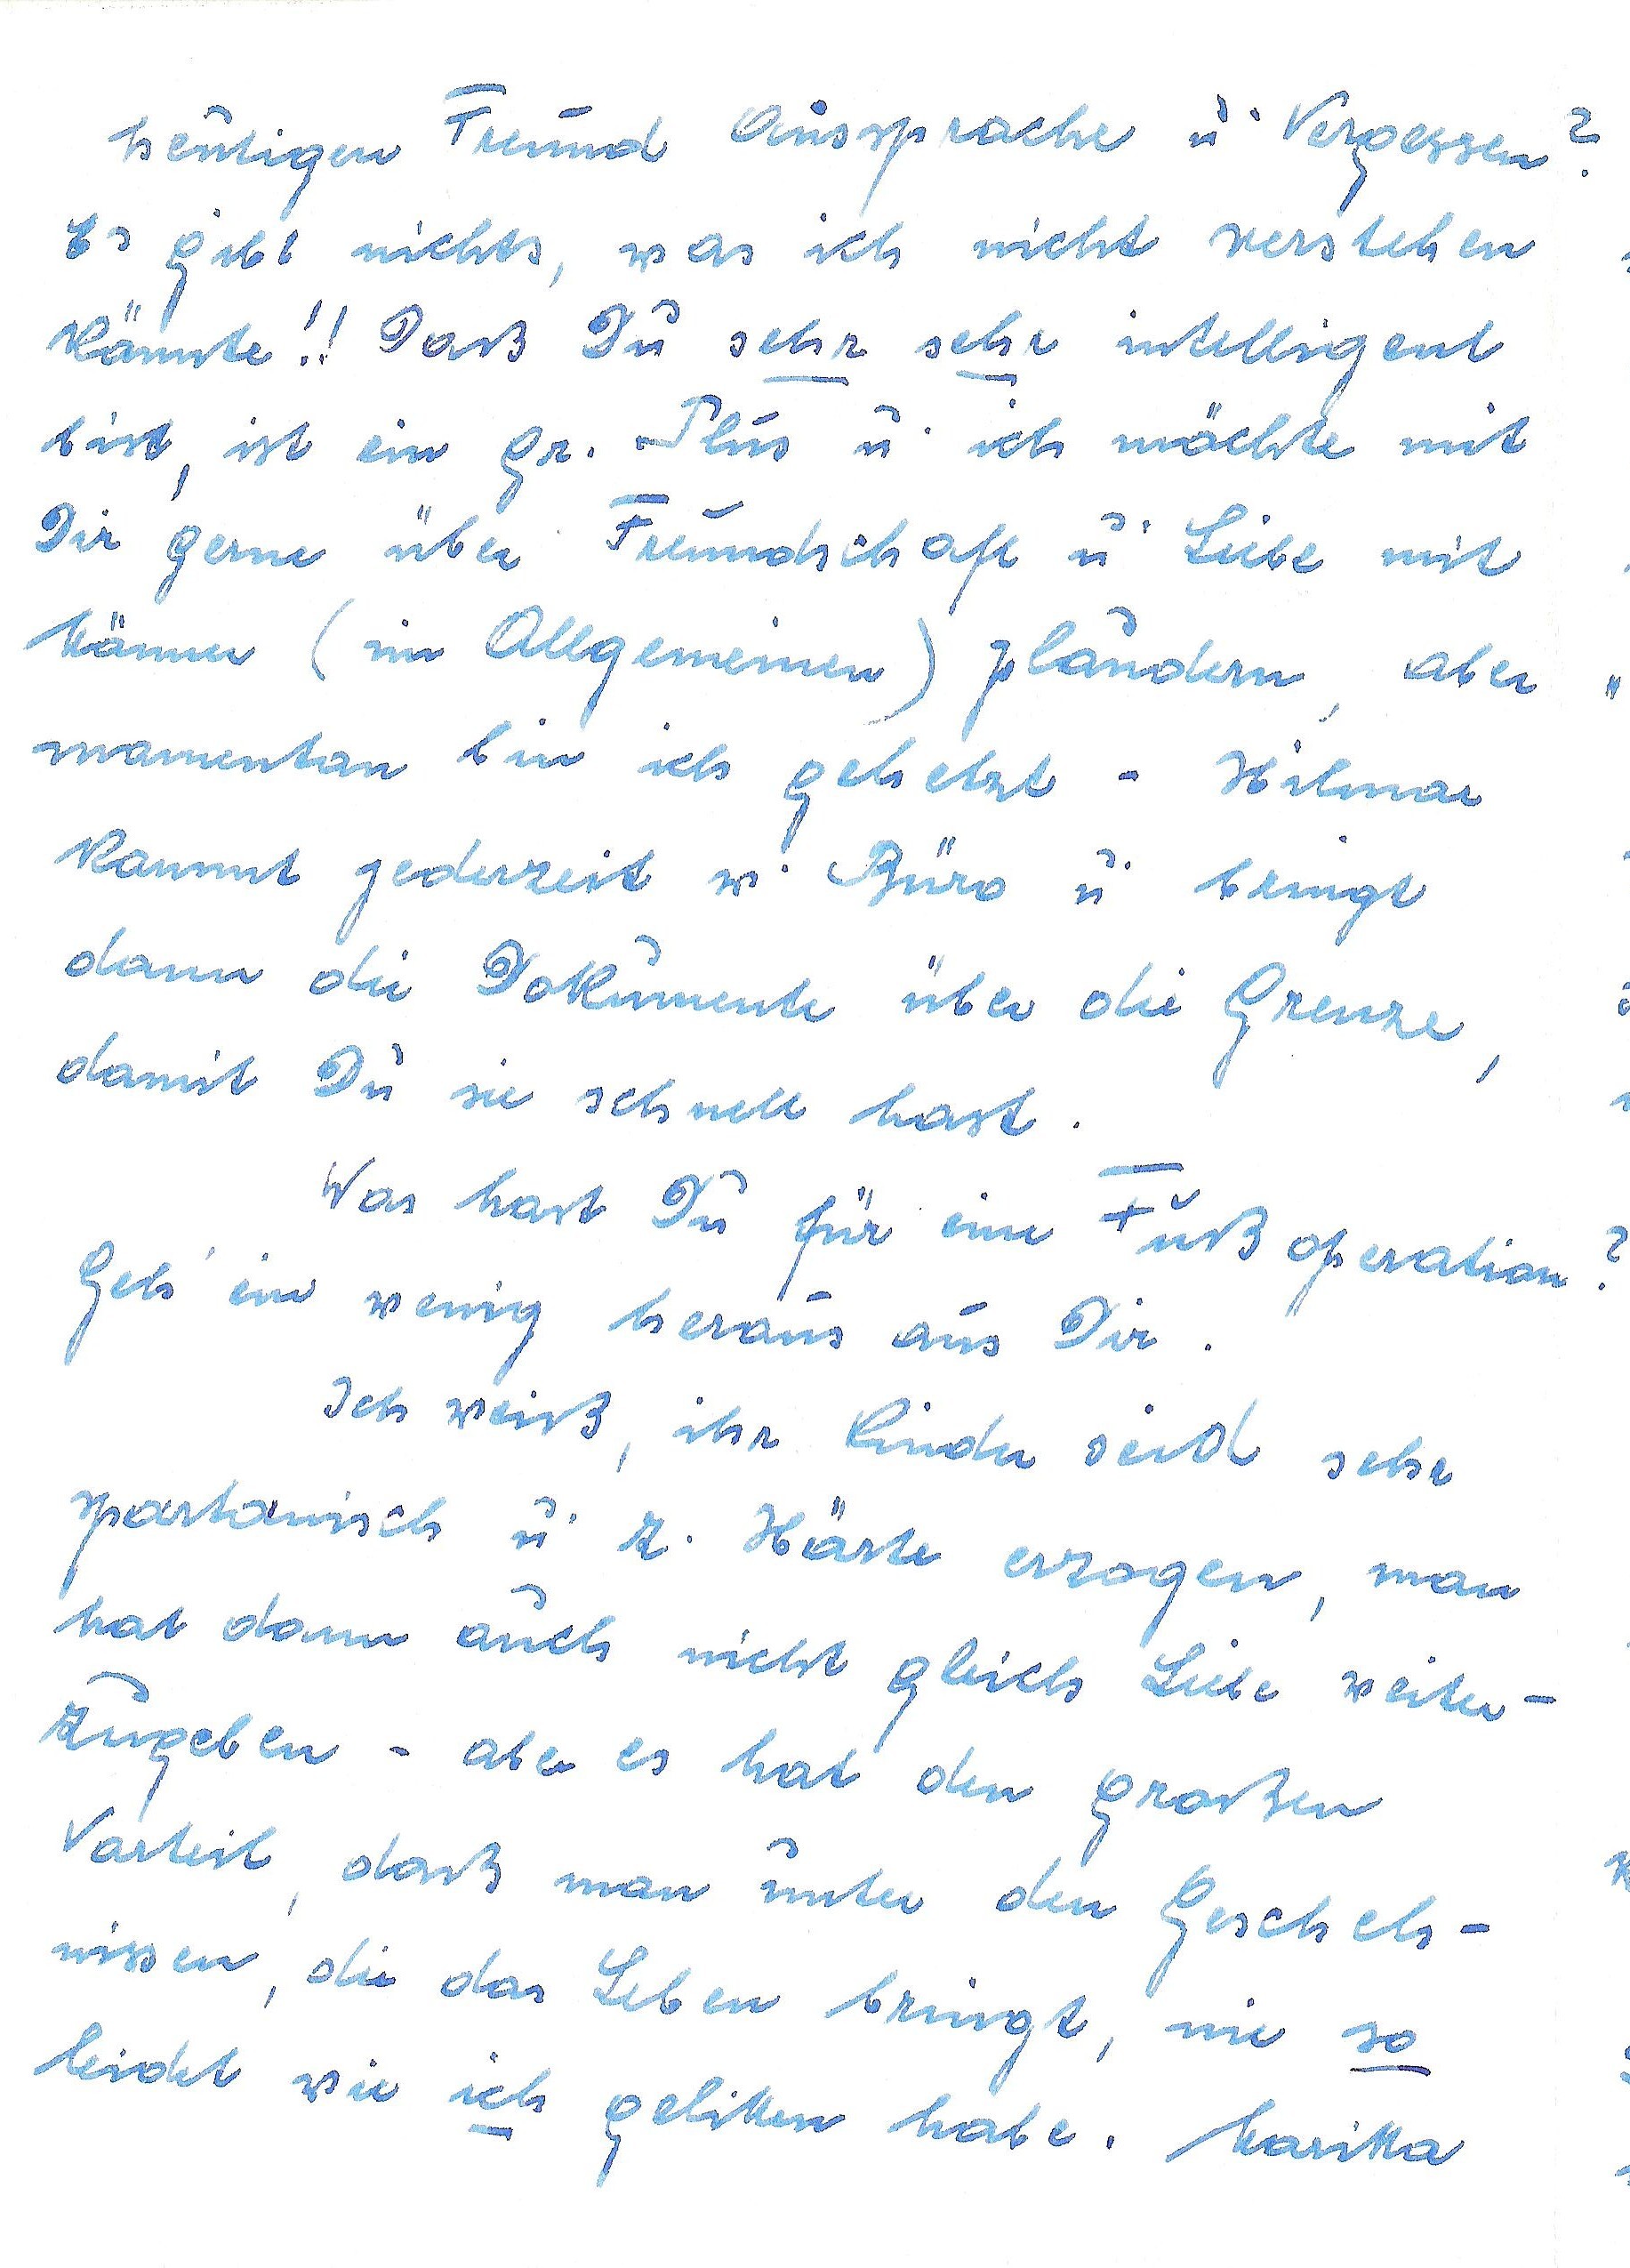 heutigen Freund Aussprache u. Vergessen?
Es gibt nichts, was ich nicht verstehen
könnte!! Daß Du sehr sehr intelligent
bist, ist ein gr. Plus u. ich möchte mit
Dir gerne über Freundschaft u. Liebe mit
Männer (im Allgemeinen) plaudern, aber
momentan bin ich gehetzt - Hilmar
kommt jederzeit v. Büro u. bringt
dann die Dokumente über die Grenze,
damit Du sie schnell hast.
Was hast Du für eine Fußoperation?
Geh' ein wenig heraus aus Dir.
Ich weiß, ihr Kinder seid sehr
spartanisch u. z. Härte erzogen, man
hat dann auch nicht gleich Liebe weiter-
zugeben - aber es hat den großen
Vorteil, daß man unter den Gescheh-
nissen, die das Leben bringt, nie so
leidet wie ich gelitten habe. Maritta